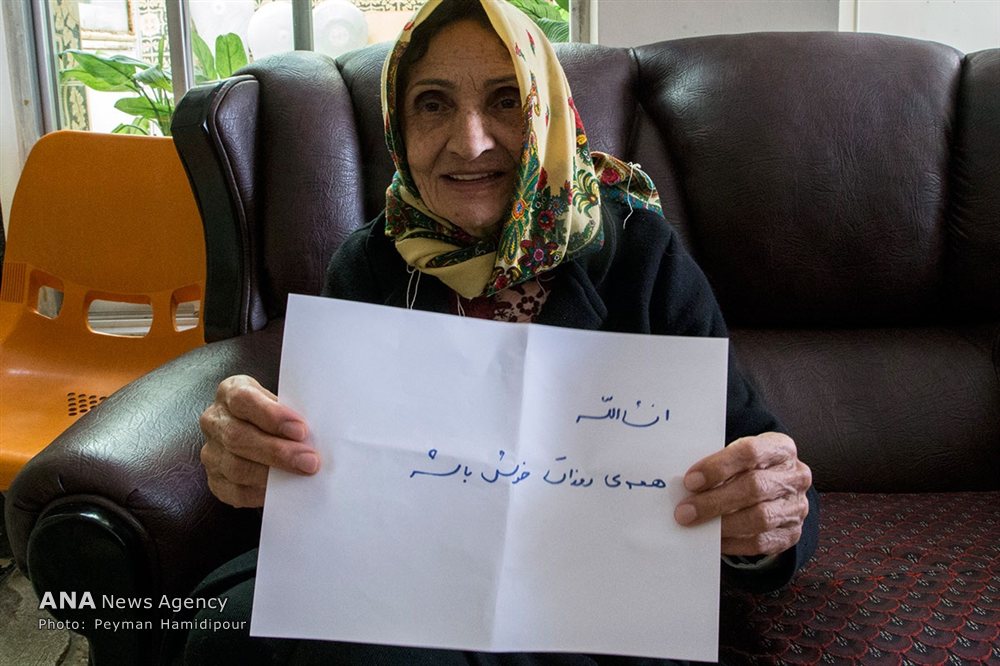 انشاالله
همه‌ی روزات خوش باشه
ANA News Agency
Photo: Peyman Hamidipour